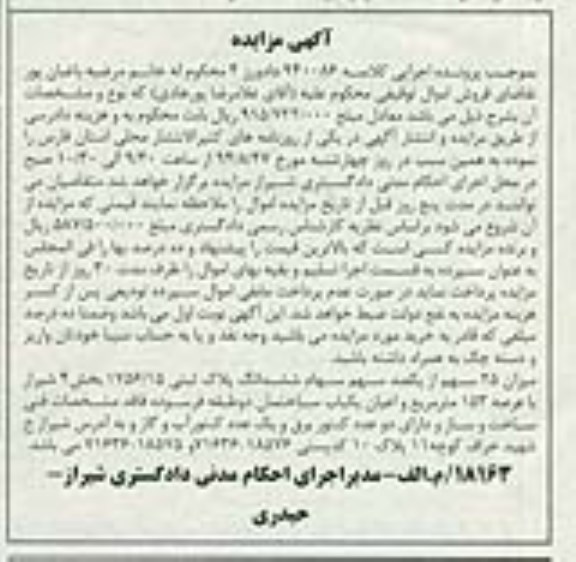 آگهی مزایده
بموجب پرونده اجرایی کلاسه ۹۴۰۰۸۶ دادورز ۴ محکوم له خانم مرضیه باغبان پور
تقاضای فروش اموال توقیفی محکوم علیه (آقای غلامرضا پورهادی) که نوع و مشخصات
آن بشرح ذیل می باشد معادل مبلغ ریال بابت محکوم به و هزینه دادرسی
از طریق مزایده و انتشار آگهی در یکی از روزنامه های کثیرالانتشار محلی استان فارس را
نموده به همین سبب در روز چهارشنبه مورخ از ساعت ۹:۳۰ الی ۱۰:۳۰ صبح
در محل اجرای احکام مدنی دادگستری شیراز مزایده برگزار خواهد شد متقاضیان می
توانند در مدت پنج روز قبل از تاریخ مزایده اموال را ملاحظه نمایند قیمتی که مزایده از
آن شروع می شود براساس نظریه کارشناس رسمی دادگستری مبلغ ریال
و برنده مزایده کسی است که بالاترین قیمت را پیشنهاد و ده درصد بها را فی المجلس
به عنوان سپرده به قسمت اجرا تسلیم و بقیه بهای اموال را ظرف مدت ۳۰ روز از تاریخ
مزایده پرداخت نماید در صورت عدم پرداخت مابقی اموال سپرده تودیعی پس از کسر
هزینه مزایده به نفع دولت ضبط خواهد شد این آگهی نوبت اول می باشد وضمنا ده درصد
مبلغی که قادر به خرید مورد مزایده می باشید وجه نقد و یا به حساب سیبا خودتان واریز
و دسته چک به همراه داشته باشید.
میزان ۲۵ سهم از یکصد سهم سهام ششدانگ پلاک ثبتی ۱۷۵۶/۱۵ بخش ۴ شیراز
با عرصه ۱۵۳ مترمربع و اعیان یکباب ساختمان دوطبقه فرسوده فاقد مشخصات فنی
ساخت و ساز و دارای دو عدد کنتور برق و یک عدد کنتور آب و گاز و به آدرس شیراز خ
شهید کوچه ۱۱ پلاک ۱۰ کدپستی می باشد.
۱۸۱۶۳/م.الف-مدیراجرای احکام مدنی دادگستری شیراز-
حیدری